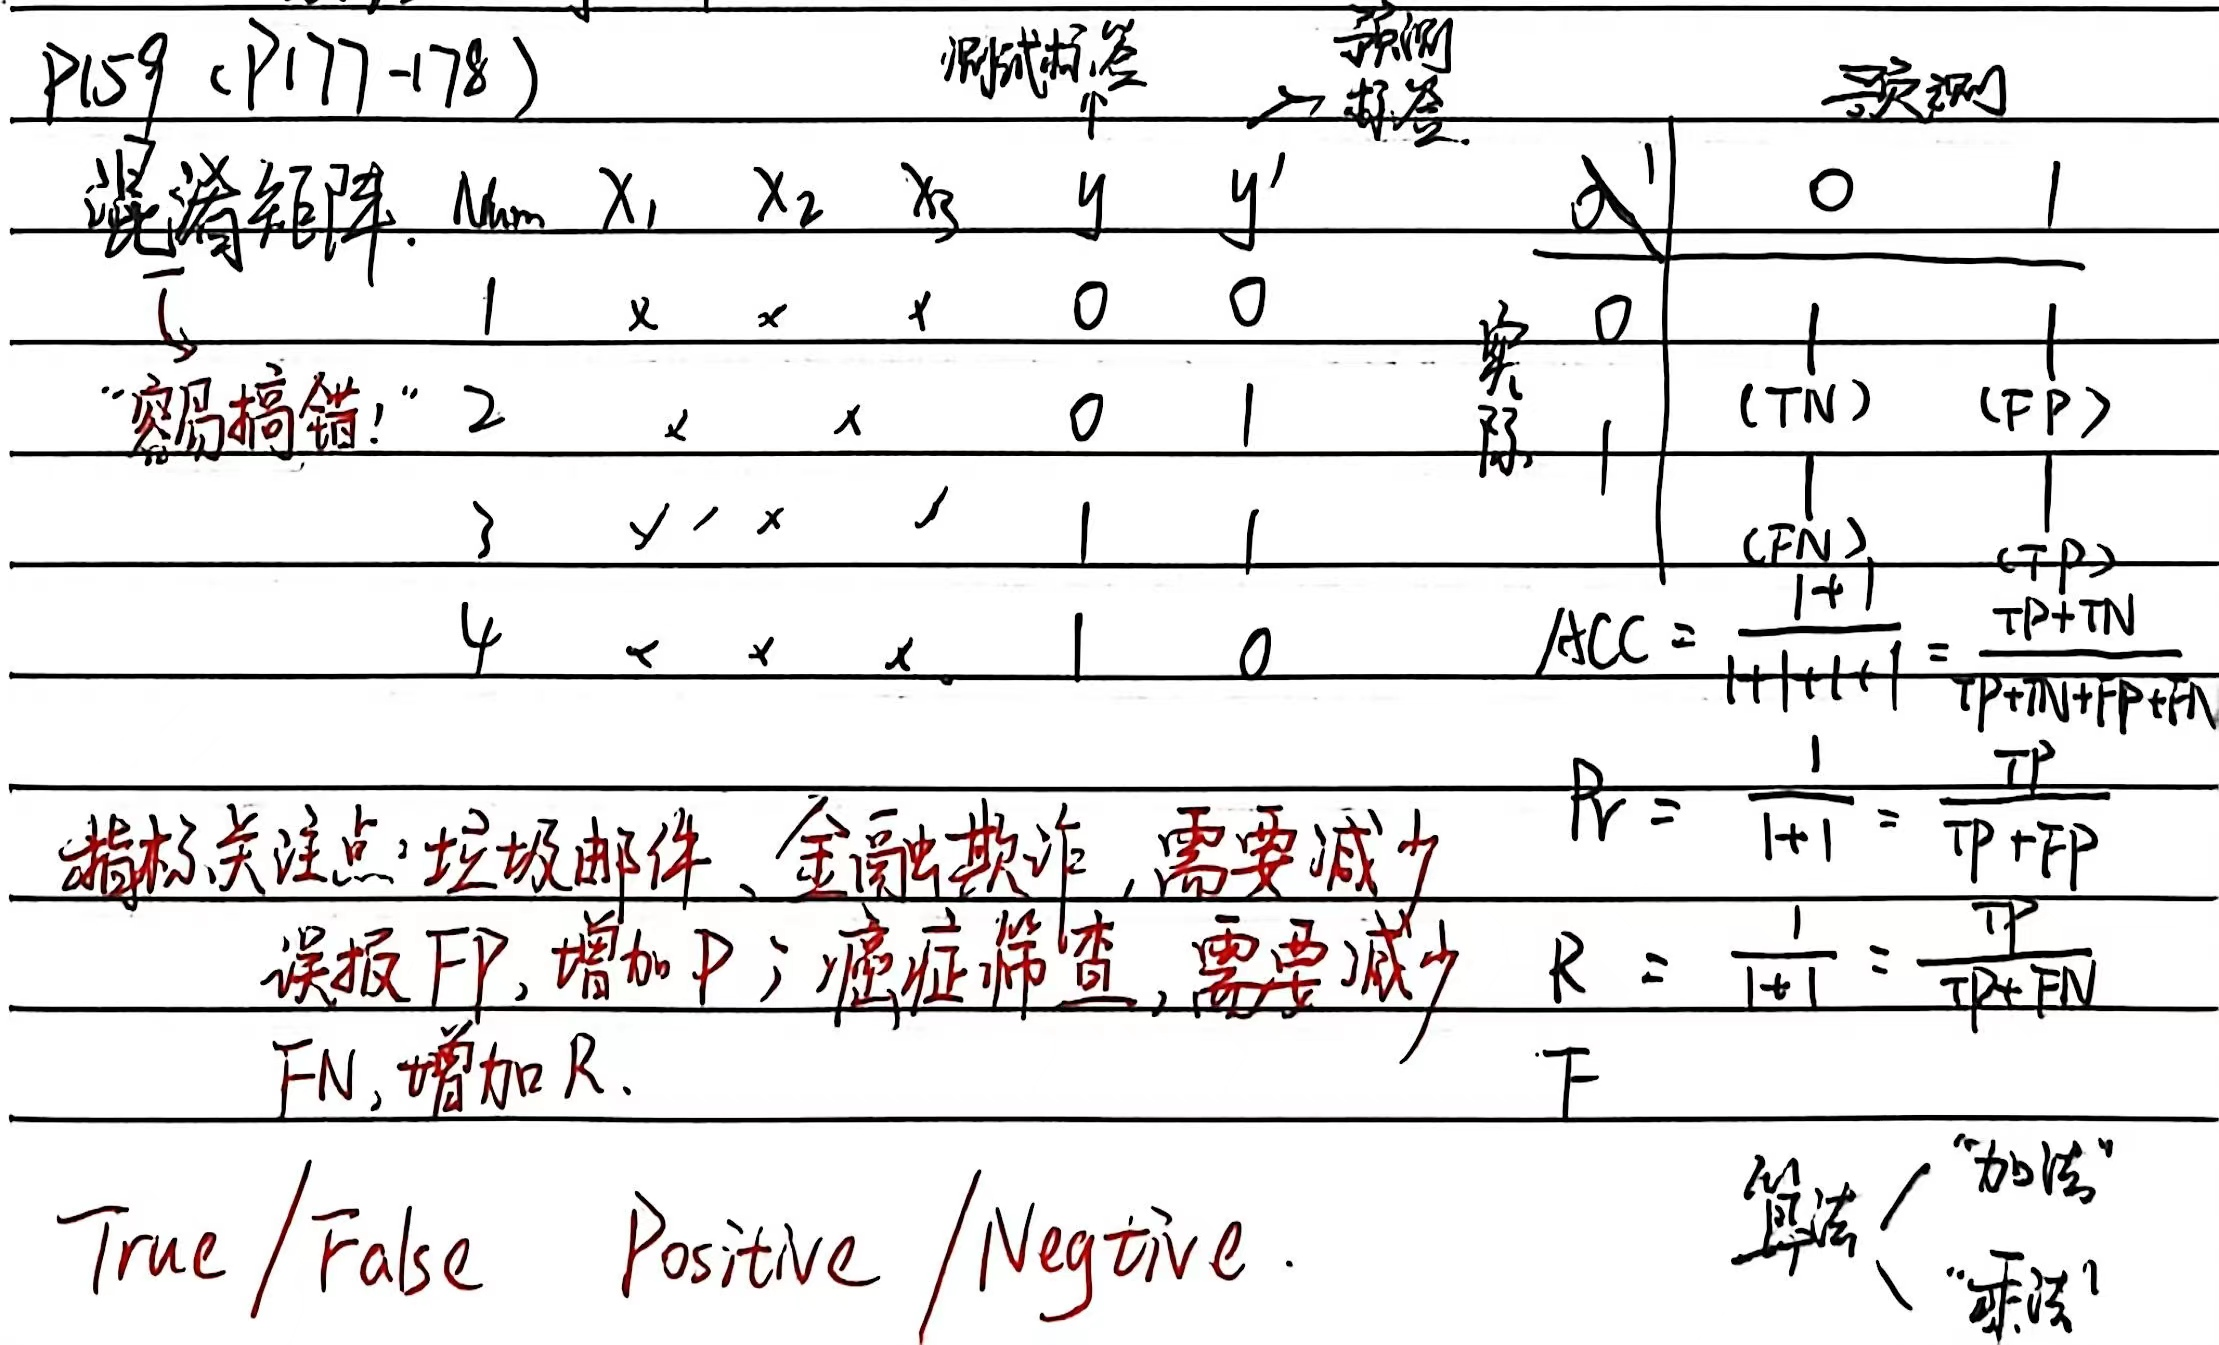 P159 (P177-178)
测试标签
预测
标签
预测
混淆矩阵. Num X₁ X₂ X₃ y y'
0 1
1 x x x 0 0
实际
0 1 1
(TN) (FP)
"容易搞错!"
2 x x 0 1
1 1 1
(FN) (TP)
3 x 1 1
4 x x x 1 0
ACC = 1+1 / 1+1+1+1 = TP+TN / TP+TN+FP+FN
Pr = 1 / 1+1 = TP / TP+FP
R = 1 / 1+1 = TP / TP+FN
F
指标关注点:垃圾邮件、金融欺诈,需要减少
误报FP,增加P;癌症筛查,需要减少
FN,增加R.
True/False Positive/Negtive.
算法
"加法"
"乘法"